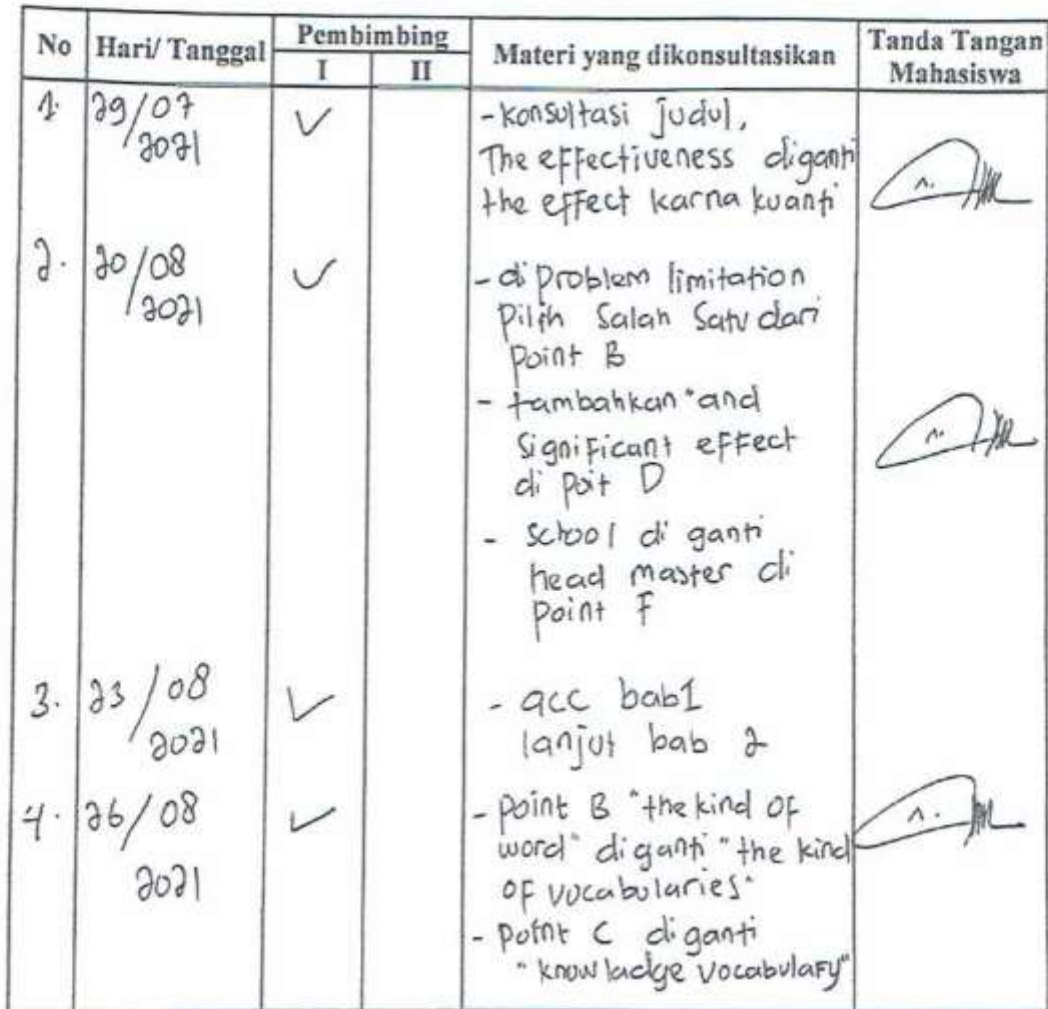 No Hari/ Tanggal Pembimbing Materi yang dikonsultasikan Tanda Tangan
I II Mahasiswa
1. 29/07 ✓ - konsultasi judul,
2021 The effectiveness diganti
the effect karna kuanti
2. 20/08 ✓ - di problem limitation
2021 pilih salah satu dari
point B
- tambahkan "and
significant effect
di poit D
- school di ganti
head master di
point F
3. 23/08 ✓ - acc bab1
2021 lanjut bab 2
4. 26/08 ✓ - point B "the kind of
2021 word" diganti "the kind
of vocabularies"
- point C diganti
"know ladge vocabulary"